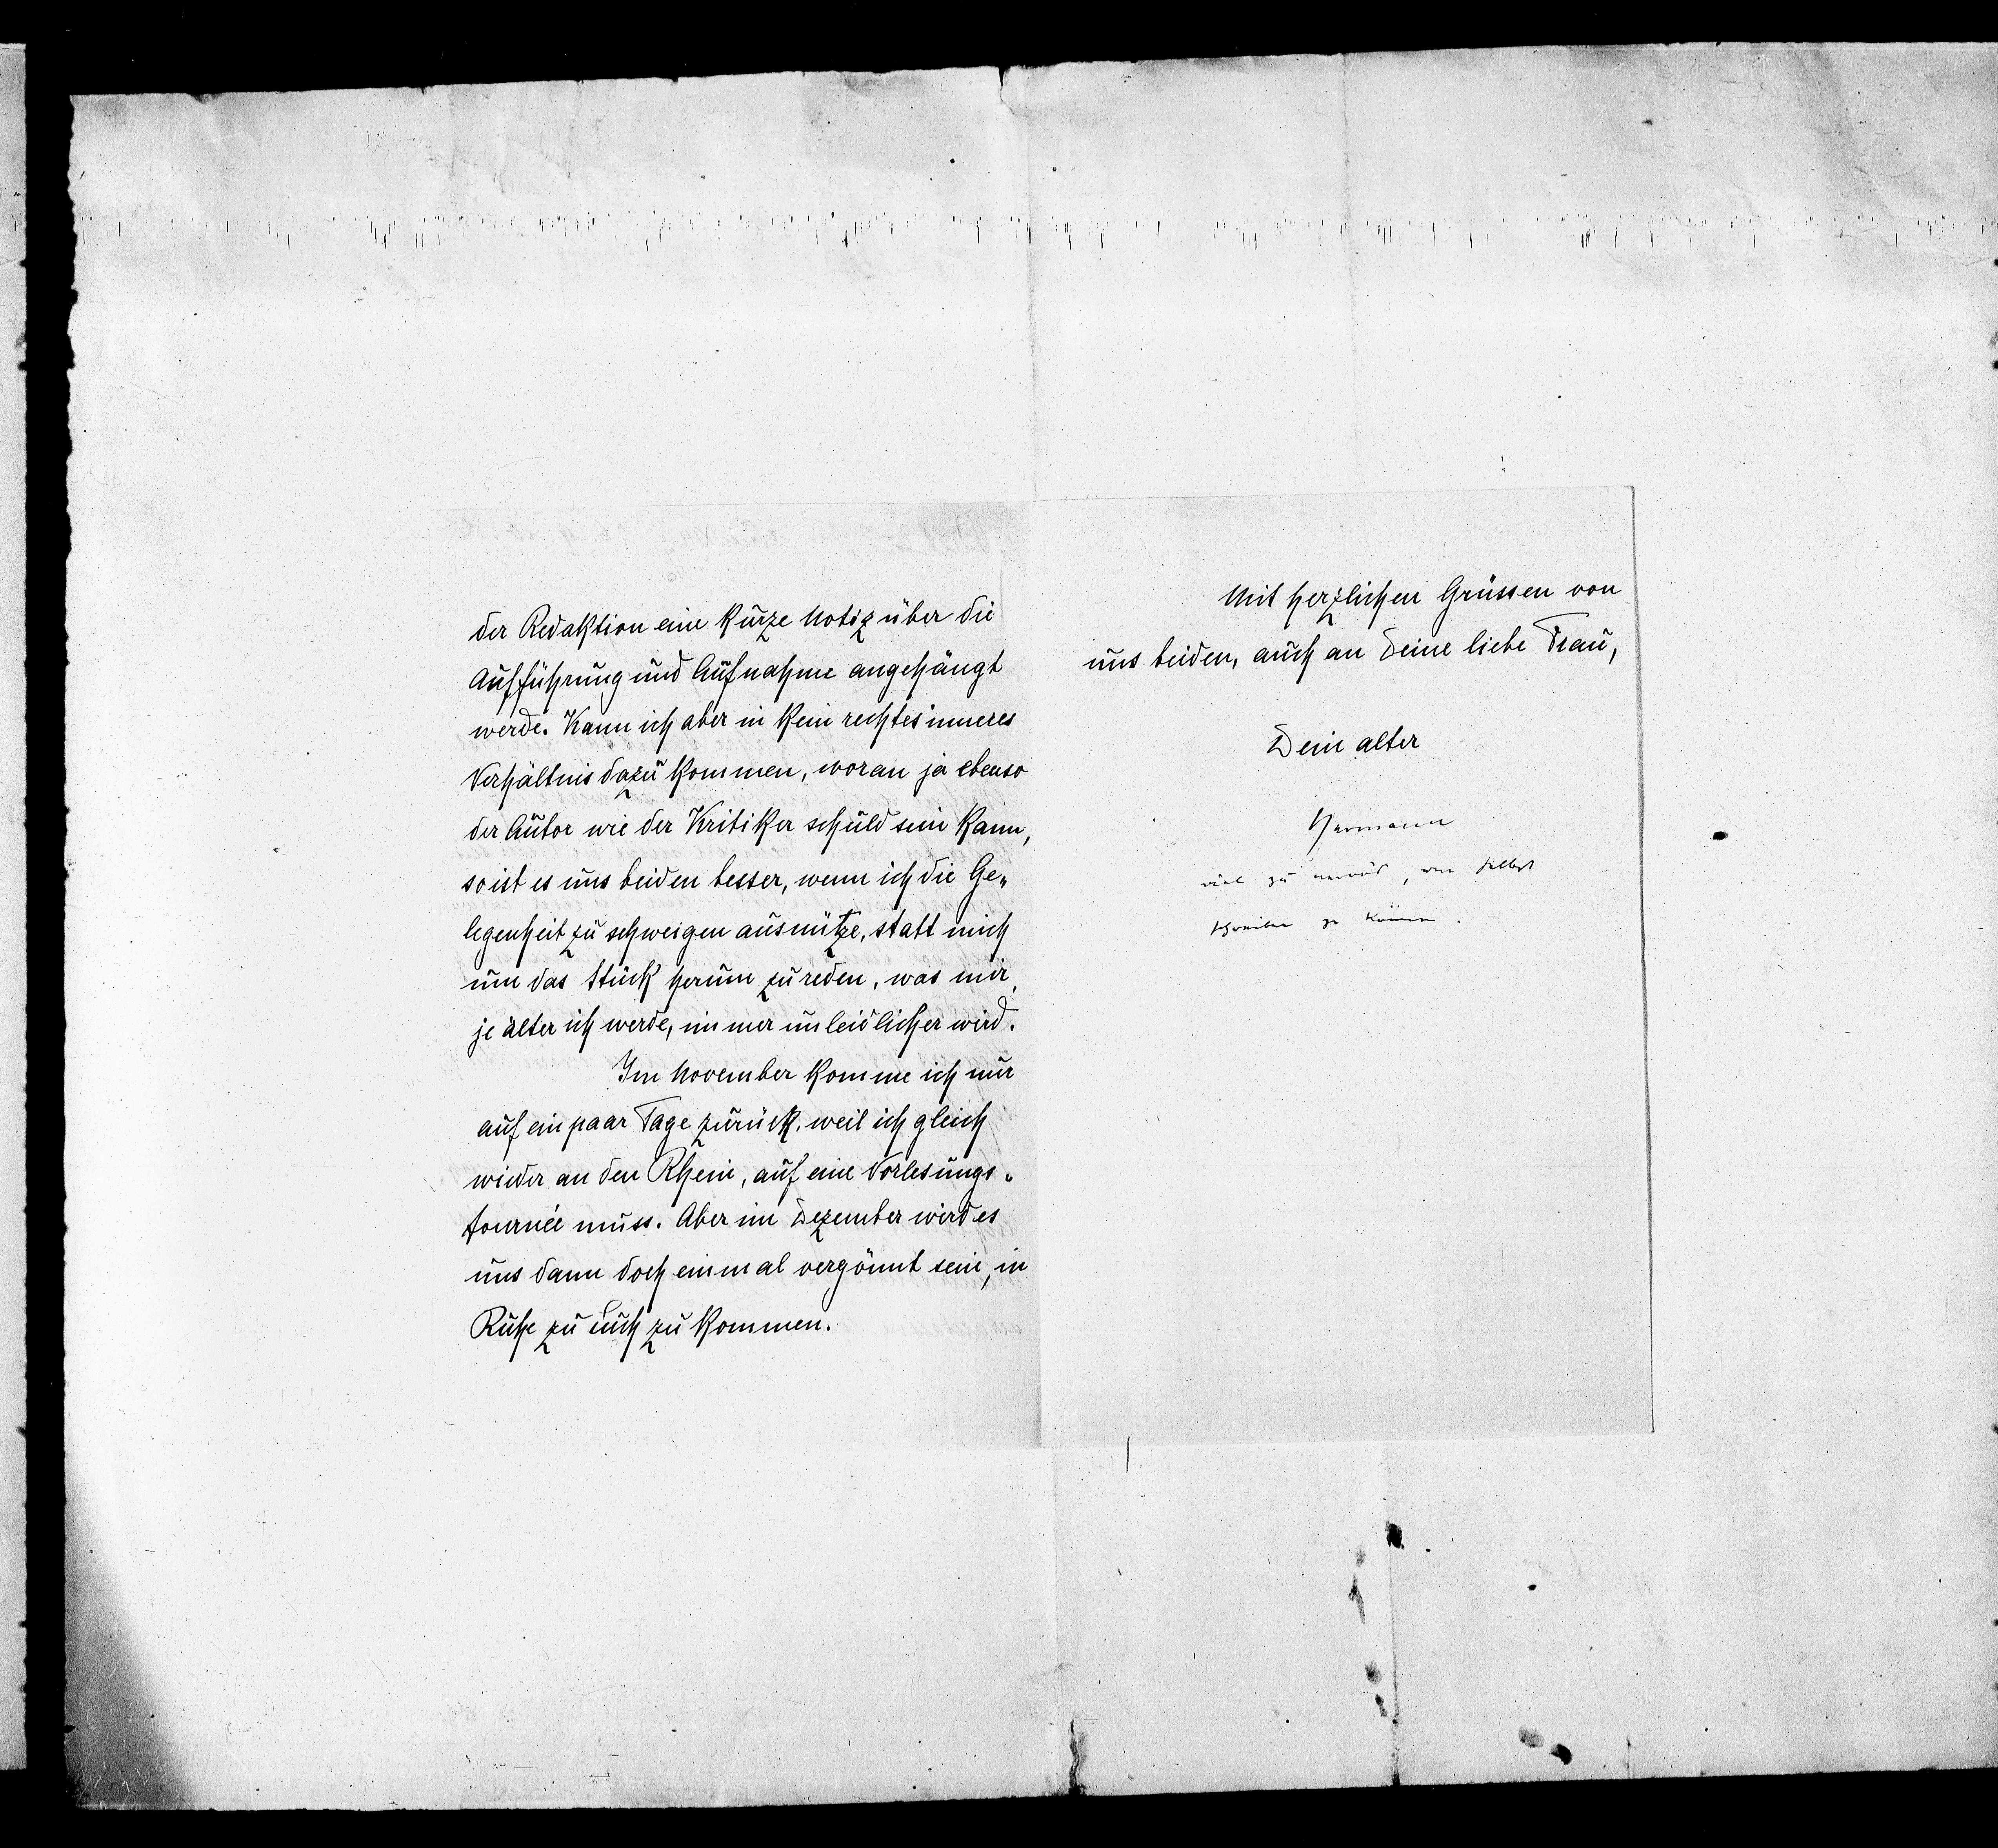 der Redaktion eine kurze Notiz über die
Aufführung und Aufnahme angehängt
werde. Kann ich aber in kein rechtes inneres
Verhältnis dazu kommen, woran ja ebenso
der Autor wie der Kritiker schuld sein kann,
so ist es uns beiden besser, wenn ich die Ge„
legenheit zu schweigen ausnütze, statt mich
um das Stück herum zu reden, was mir,
je älter ich werde, immer unleidlicher wird.
Im November komme ich nur
auf ein paar Tage zurück, weil ich gleich
wieder an den Rhein, auf eine Vorlesungs„
tournée muss. Aber im Dezember wird es
uns dann doch einmal vergönnt sein, in
Ruhe zu Euch zu kommen.
Mit herzlichen Grüssen von
uns beiden, auch an Deine liebe Frau,
Dein alter
Hermann
viel zu nervös, um selbst
schreiben zu können.